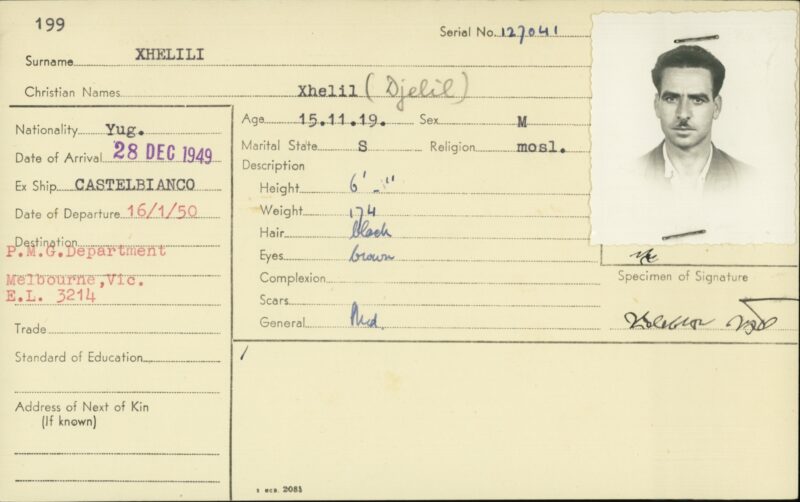 199
Serial No. 127041
Surname XHELILI
Christian Names Xhelil (Djelil)
Nationality Yug.
Date of Arrival 28 DEC 1949
Ex Ship CASTELBIANCO
Date of Departure 16/1/50
Destination
P.M.G.Department
Melbourne,Vic.
E.L. 3214
Trade
Standard of Education
Address of Next of Kin
(If known)
Age 15.11.19. Sex M
Marital State S Religion mosl.
Description
Height 6' -"
Weight 174
Hair black
Eyes brown
Complexion
Scars
General Med.
Specimen of Signature